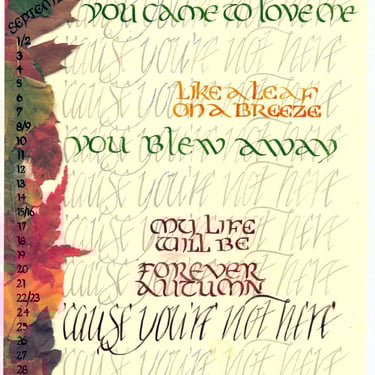 SEPTEM
1/2
3
4
5
6
7
8/9
10
11
12
13
14
15/16
17
18
19
20
21
22/23
24
25
26
27
28
you came to love me
'cause you're not here
'cause you're not here
like a leaf
on a breeze
you blew away
'cause you're not here
'cause you're not here
my life
will be
forever
autumn
'cause you're not here
'cause you're not here